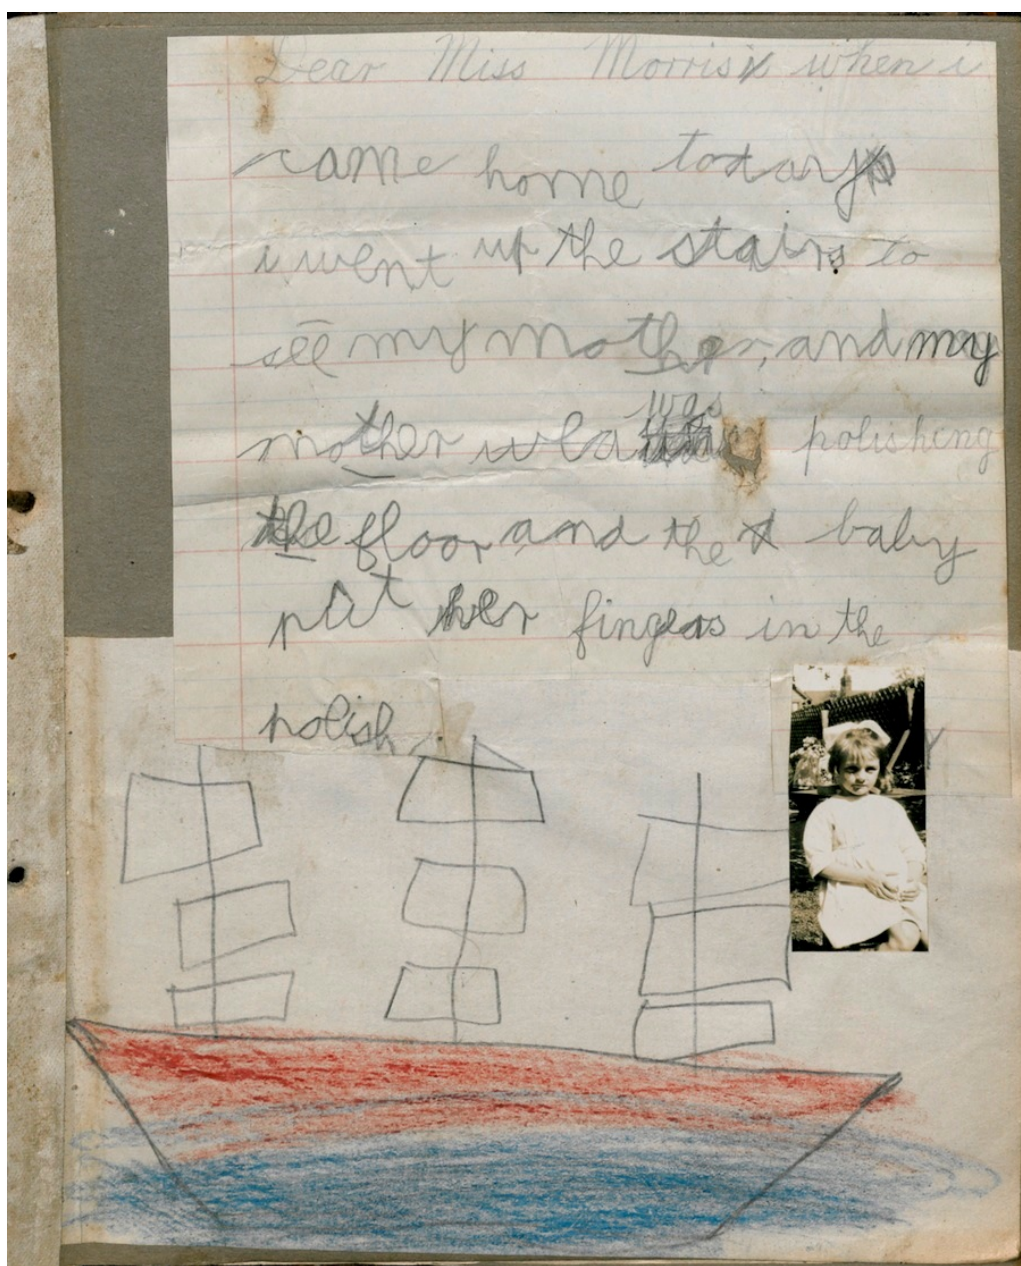 Dear Miss Morris when i
came home today
i went up the stairs to
see my mother, and my
mother was polishing
the floor and the baby
put her fingers in the
polish.